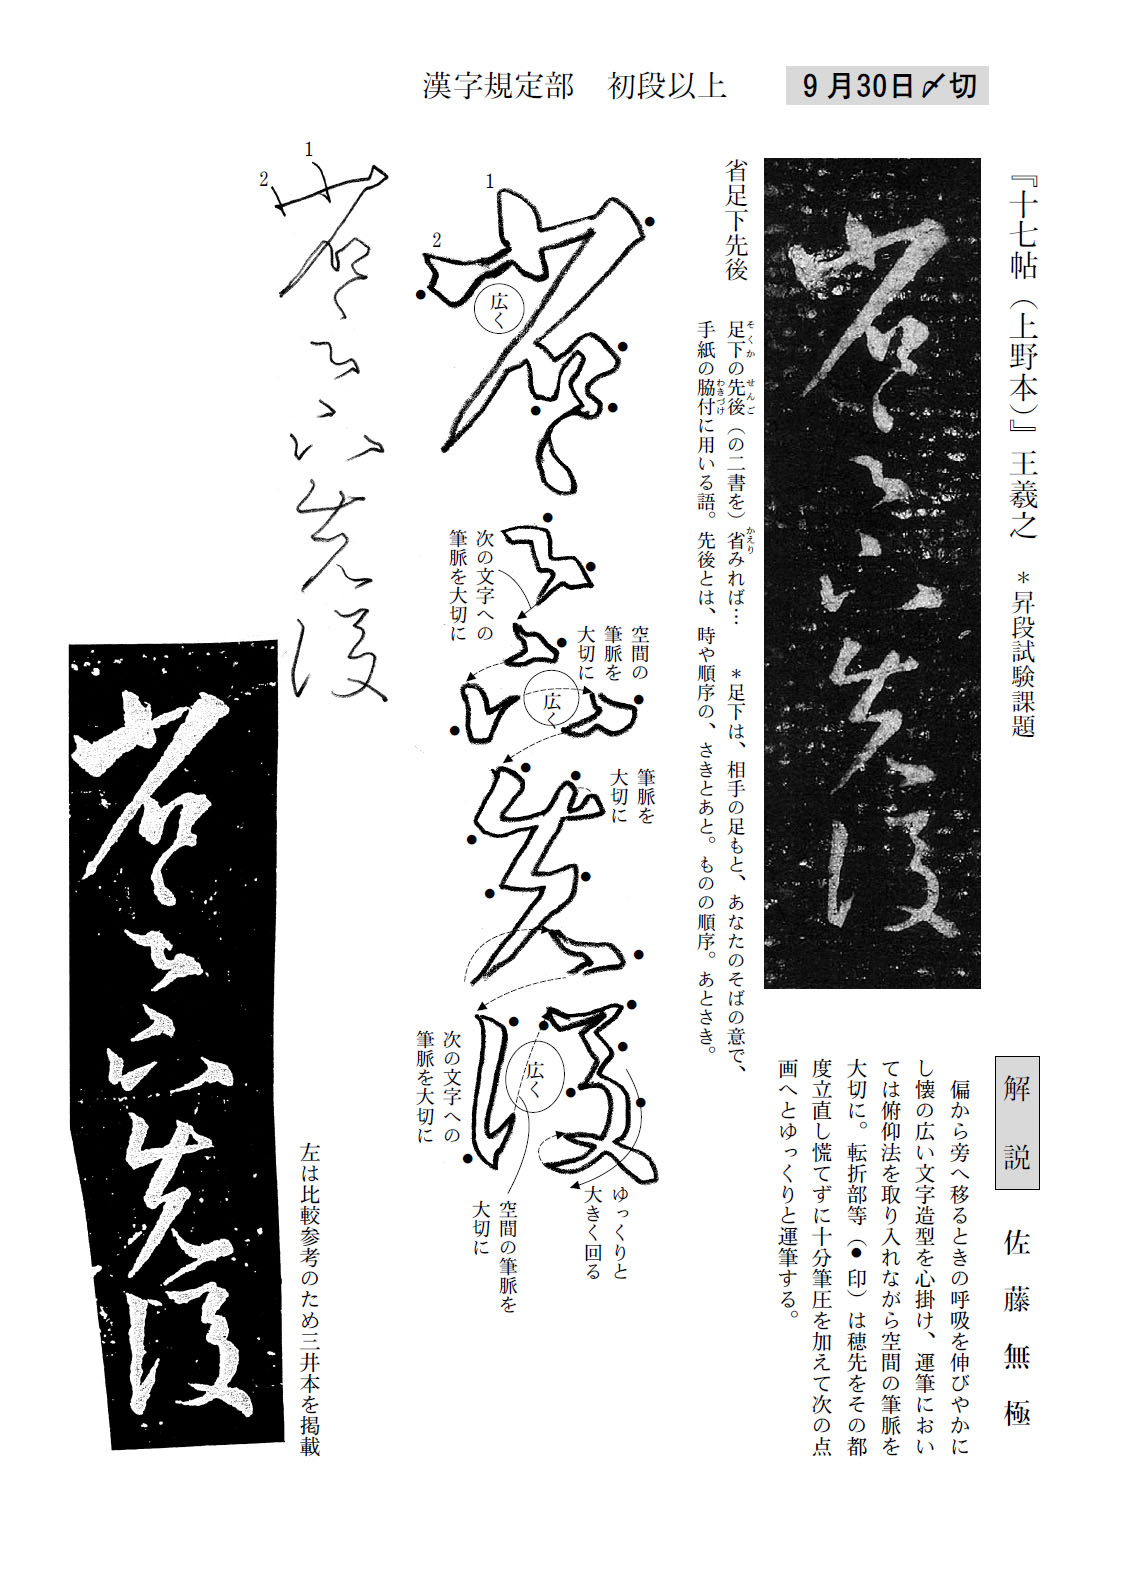 漢字規定部　初段以上
9月30日〆切
『十七帖（上野本）』王羲之　＊昇段試験課題
省足下先後
足下の先後（の二書を）省みれば…　＊足下は、相手の足もと、あなたのそばの意で、
そくか　せんご　かえり
手紙の脇付に用いる語。先後とは、時や順序の、さきとあと。ものの順序。あとさき。
わきづけ
解説　佐藤無極
偏から旁へ移るときの呼吸を伸びやかに
し懐の広い文字造型を心掛け、運筆におい
ては俯仰法を取り入れながら空間の筆脈を
大切に。転折部等（●印）は穂先をその都
度立直し慌てずに十分筆圧を加えて次の点
画へとゆっくりと運筆する。
1
2
広く
次の文字への
筆脈を大切に
空間の
筆脈を
大切に
広く
筆脈を
大切に
次の文字への
筆脈を大切に
広く
ゆっくりと
大きく回る
空間の筆脈を
大切に
1
2
省足下先後
省足下先後
省足下先後
省足下先後
左は比較参考のため三井本を掲載